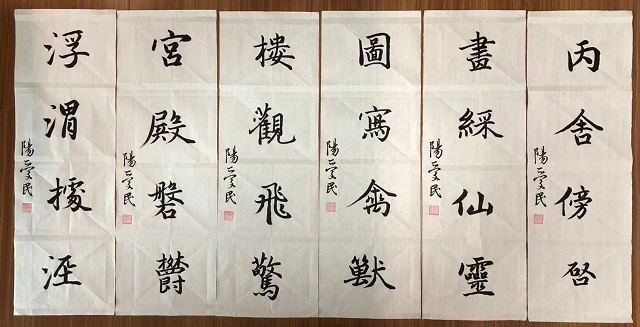 浮渭據涇
陽愛民
宮殿磐鬱
陽愛民
樓觀飛驚
陽愛民
圖寫禽獸
陽愛民
畫綵仙靈
陽愛民
丙舍傍啓
陽愛民